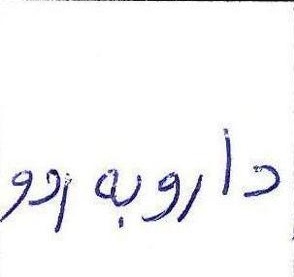 دارو به اردو